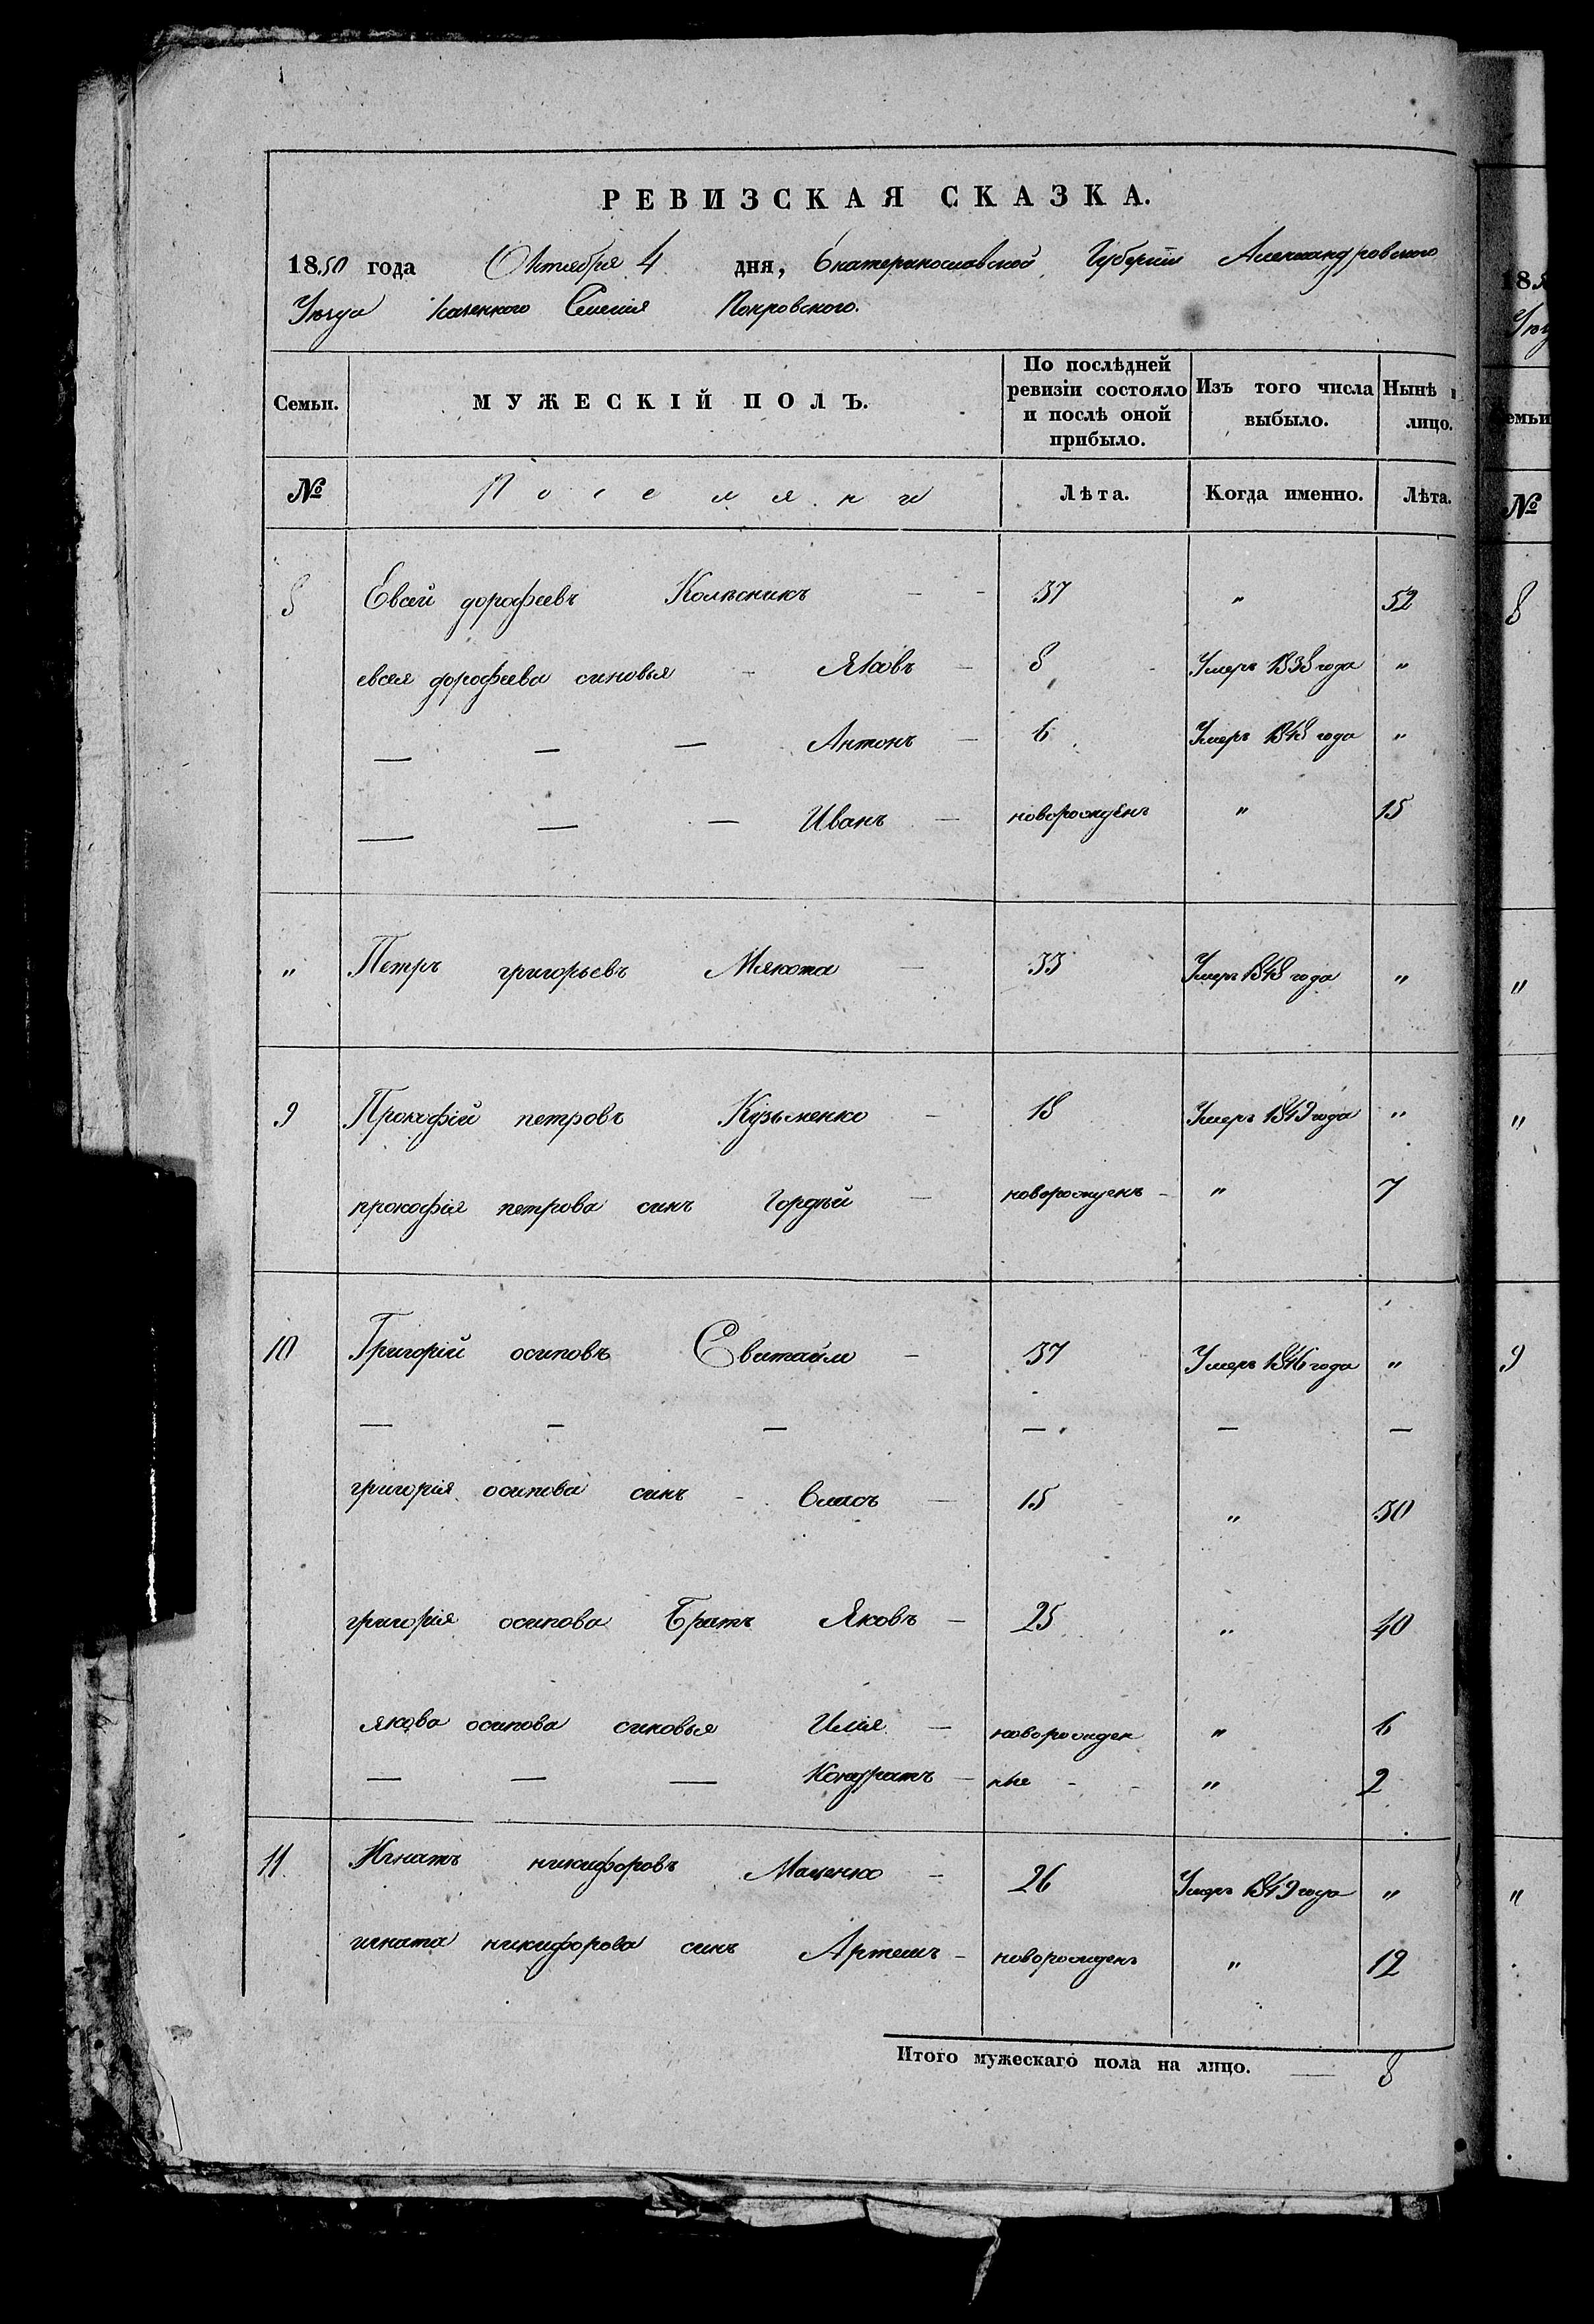 РЕВИЗСКАЯ СКАЗКА.
1850 года Октября 4 дня, Екатеринославской Губернiи Александровского
Уезда Казенного Селения Покровского.
Семьи. МУЖЕСКIЙ ПОЛЪ. По послѣдней ревизiи состояло и послѣ оной прибыло. Изъ того числа выбыло. Нынѣ лицо.
№ Поселяни Лѣта. Когда именно. Лѣта.
8 Евсей дорофеевъ Колѣсникъ — - 37 " 52
евсея дорофеева синовья - Яковъ - 8 Умеръ 1838 года "
— — — Антонъ - 6 Умеръ 1848 года "
— — — Иванъ - новорожденъ " 15
" Петръ григорьевъ Мякота - 33 Умеръ 1848 года "
9 Прокофiй петровъ Кузьменко - 18 Умеръ 1849 года "
прокофiя петрова синъ Гордѣй - новорожденъ - " 7
10 Григорiй осиповъ - 37 Умеръ 1846 года "
— — — — — —
григорiя осипова синъ - Власъ - 15 " 30
григорiя осипова Братъ Яковъ - 25 " 40
якова осипова синовья Илiя - новорожден " 6
— — — Кондратъ - ные - - " 2
11 Игнатъ никифоровъ - 26 Умеръ 1849 года "
игната никифорова синъ Артемъ - новорожденъ " 12
Итого мужескаго пола на лицо. — 8
18
№
8
"
"
9
"